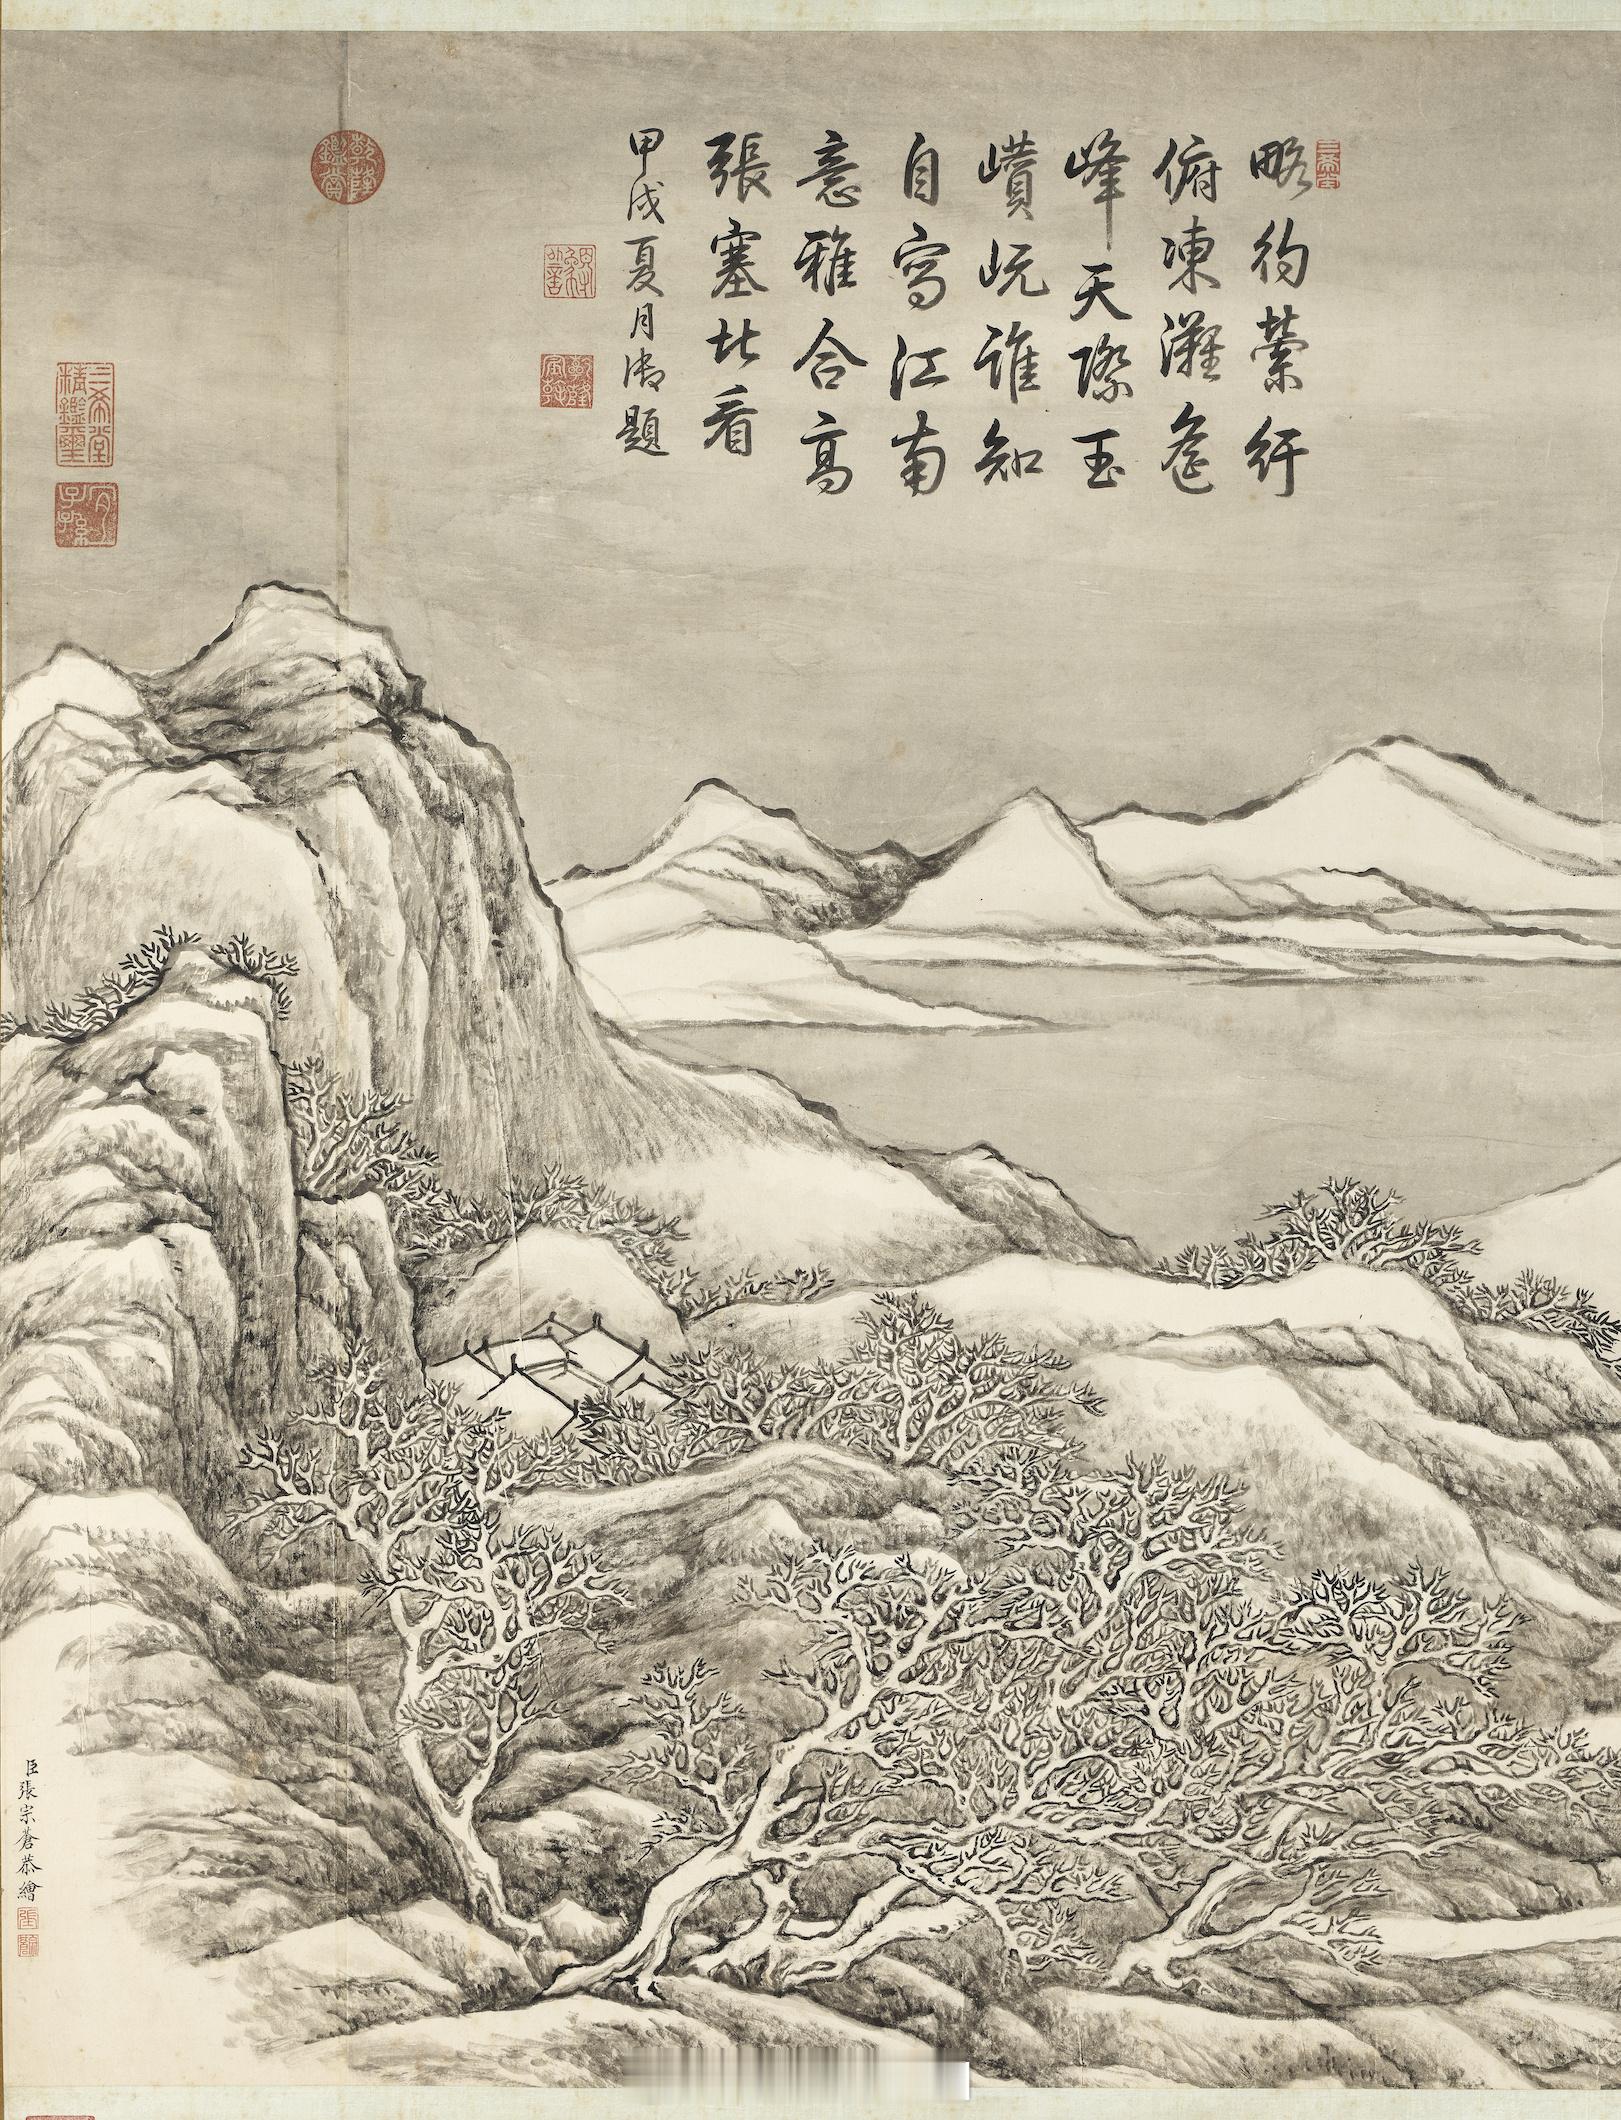 略彴縈紆
俯凍灘嵞
峰天際玉
巑岏誰知
自寫江南
意雅合高
張塞北看
甲戌夏月御題
三希堂
乾隆鑑賞
乾隆宸翰
三希堂精鑑璽
宜子孫
臣張宗蒼恭繪